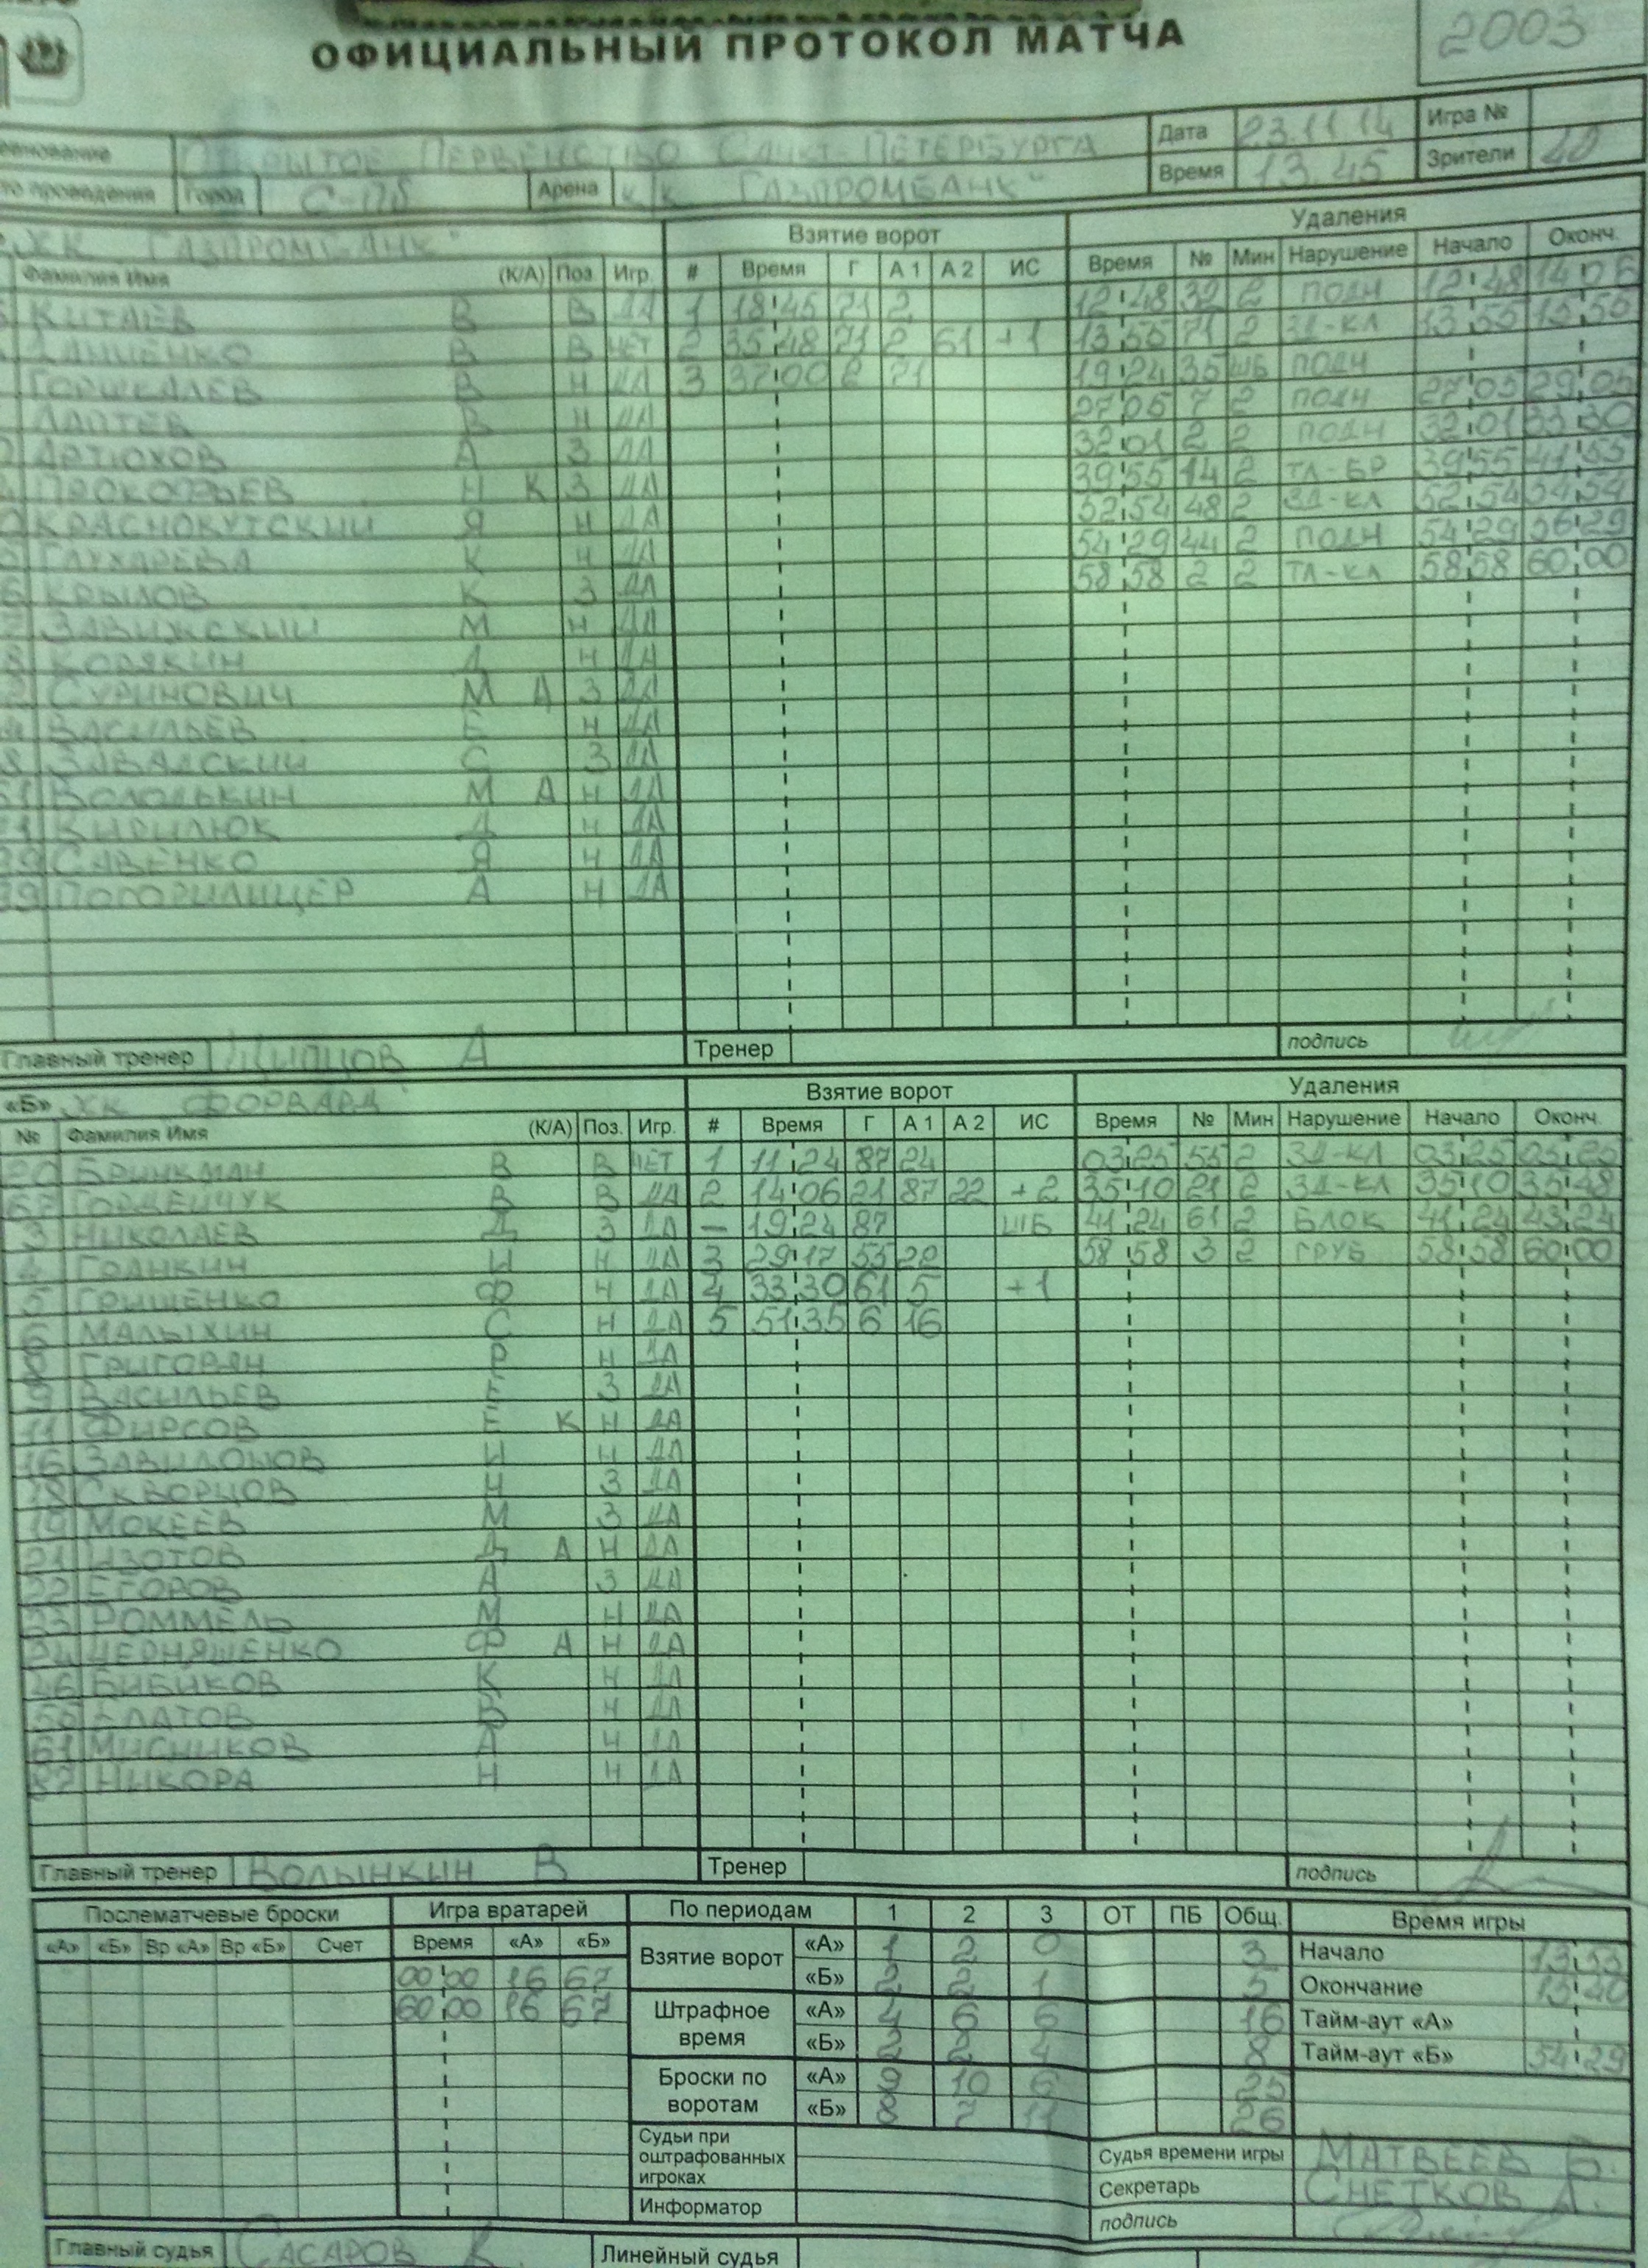 ОФИЦИАЛЬНЫЙ ПРОТОКОЛ МАТЧА
2003
ОТКРЫТОЕ ПЕРВЕНСТВО САНКТ-ПЕТЕРБУРГА Дата 23.11.14 Игра №
Город С-ПБ Арена К К ГАЗПРОМБАНК" Время 13.45 Зрители
ХК ГАЗПРОМБАНК" Взятие ворот Удаления
Фамилия Имя (К/А) Поз. Игр. # Время Г А 1 А 2 ИС Время № Мин Нарушение Начало Оконч.
КИТАЕВ В В ДА 1 18:45 71 2 12:48 32 2 ПОДН 12:48 14:06
В В НЕТ 2 35:48 71 2 61 +1 13:55 71 2 ЗД-КЛ 13:55 15:55
В Н ДА 3 37:00 2 71 19:24 35 ШБ ПОДН
ЛАПТЕВ В Н ДА 27:05 7 2 ПОДН 27:05 29:05
АРТЮХОВ А З ДА 32:01 2 2 ПОДН 32:01 33:30
ПРОКОФЬЕВ Н К З ДА 39:55 14 2 ТЛ-БР 39:55 41:55
КРАСНОКУТСКИЙ Я Н ДА 52:54 48 2 ЗД-КЛ 52:54 54:54
ГЛУХАРЕВА К Н ДА 54:29 44 2 ПОДН 54:29 56:29
КРЫЛОВ К З ДА 58:58 2 2 ТЛ-КЛ 58:58 60:00
ЗАВИЖСКИЙ М Н ДА
КОРЯКИН Д Н ДА
СУРИНОВИЧ М А З ДА
ВАСИЛЬЕВ Е Н ДА
ЗАВАДСКИЙ С З ДА
61 ВОЛОДЬКИН М А Н ДА
71 КИРИЛЮК Д Н ДА
САВЕНКО Я Н ДА
ПОГОРИЛИЦЕР А Н ДА
Главный тренер ЩИПЦОВ А Тренер подпись
«Б» ХК ФОРВАРД Взятие ворот Удаления
№ Фамилия Имя (К/А) Поз. Игр. # Время Г А 1 А 2 ИС Время № Мин Нарушение Начало Оконч.
20 БРИНКМАН В В НЕТ 1 11:24 87 24 03:25 55 2 ЗД-КЛ 03:25 05:25
67 ГОРДЕЙЧУК В В ДА 2 14:06 21 87 22 +2 35:10 21 2 ЗД-КЛ 35:10 35:48
3 НИКОЛАЕВ Д З ДА — 19:24 87 ШБ 41:24 61 2 БЛОК 41:24 43:24
4 ГОЛИКИН И Н ДА 3 29:17 55 22 58:58 3 2 ГРУБ 58:58 60:00
5 ГРИЩЕНКО Ф Н ДА 4 33:30 61 5 +1
6 МАЛЫХИН С Н ДА 5 51:35 6 16
8 ГРИГОРЯН Р Н ДА
9 ВАСИЛЬЕВ Е З ДА
11 ФИРСОВ Е К Н ДА
16 И Н ДА
18 СКВОРЦОВ Н З ДА
19 МОКЕЕВ М З ДА
21 ИЗОТОВ Д А Н ДА
22 ЕГОРОВ А З ДА
РОММЕЛЬ М Н ДА
24 ЧЕРНЯШЕНКО Ф А Н ДА
46 БИБИКОВ К Н ДА
55 ЕЛАТОВ В Н ДА
61 МИСНИКОВ А Н ДА
87 НИКОРА Н Н ДА
Главный тренер ВОЛЫНКИН В Тренер подпись
Послематчевые броски Игра вратарей По периодам 1 2 3 ОТ ПБ Общ. Время игры
«А» «Б» Вр «А» Вр «Б» Счет Время «А» «Б» Взятие ворот «А» 1 2 0 3 Начало 13:53
00:00 16 67 «Б» 2 2 1 5 Окончание 15:40
60:00 16 67 Штрафное время «А» 4 6 6 16 Тайм-аут «А»
«Б» 2 2 4 8 Тайм-аут «Б» 54:29
Броски по воротам «А» 9 10 6 25
«Б» 8 7 11 26
Судьи при оштрафованных игроках Судья времени игры МАТВЕЕВ Б.
Секретарь СНЕТКОВ А.
Информатор подпись
Главный судья САСАРОВ К. Линейный судья